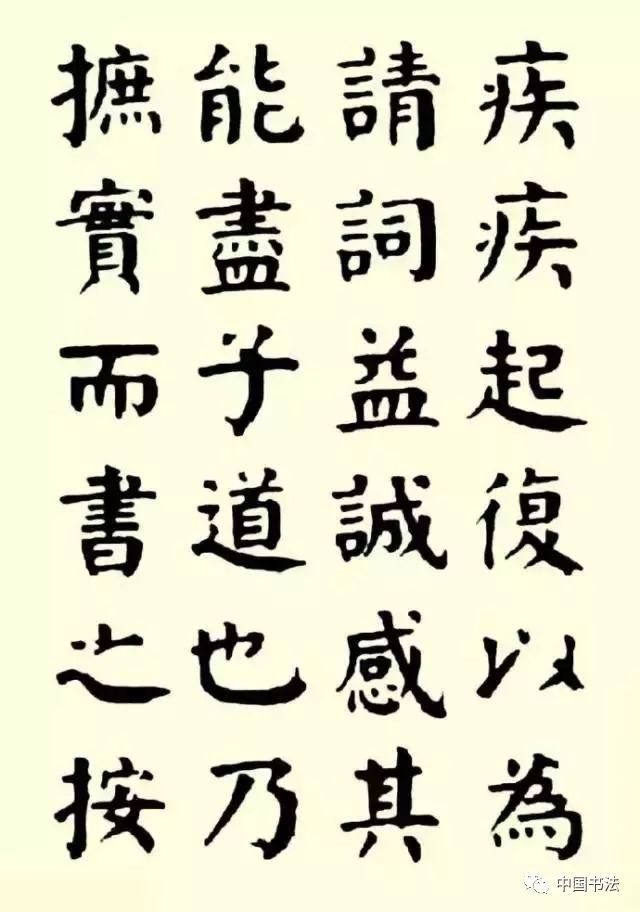 疾疾起復以為
請詞益誠感其
能盡子道也乃
摭實而書之按
中国书法